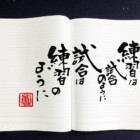 練習は
試合
のように
試合は
練習の
ように